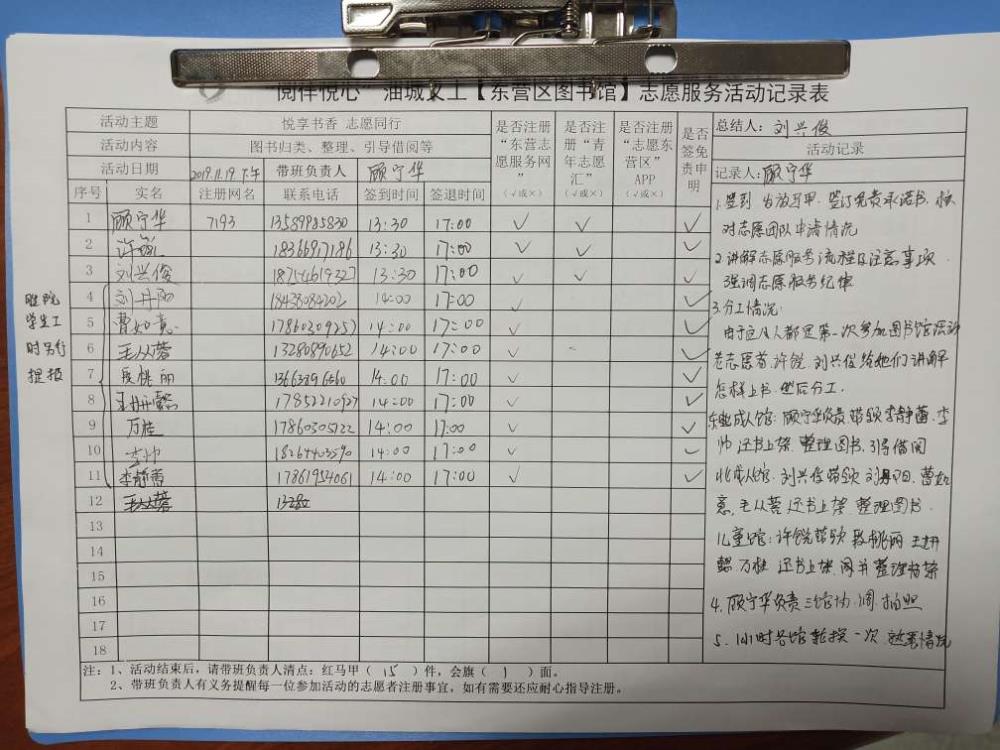 "阅伴悦心"油城义工【东营区图书馆】志愿服务活动记录表
活动主题 悦享书香 志愿同行
活动内容 图书归类、整理、引导借阅等
活动日期 2019.11.19 下午 带班负责人 顾宁华
是否注册“东营志愿服务网” （√或×）
是否注册“青年志愿汇” （√或×）
是否注册“志愿东营区”APP （√或×）
是否签免责申明
总结人：刘兴俊
活动记录
记录人：顾宁华
序号 实名 注册网名 联系电话 签到时间 签退时间
1 顾宁华 7193 13589985830 13:30 17:00 √ √ √
2 许锐 18366917186 13:30 17:00 √ √ √
3 刘兴俊 18254619327 13:30 17:00 √ √ √
4 刘丹阳 14:00 17:00 √ √
5 曹如意 17860309257 14:00 17:00 √ √
6 毛从蓉 13280890652 14:00 17:00 √ √
7 段桃丽 14:00 17:00 √ √
8 17852210927 14:00 17:00 √ √
9 万桂 17860305122 14:00 17:00 √ √
10 李帅 14:00 17:00 √ √
11 李静蕾 17861954061 14:00 17:00 √ √
12 毛从蓉 1328
13
14
15
16
17
18
学生工
时另行
提报
1.签到 发放马甲 签订免责承诺书
对志愿团队申请情况
2.讲解志愿服务流程及注意事项
强调志愿服务纪律
3.分工情况：
由于这八人都是第一次参加图书馆活动
老志愿者 许锐 刘兴俊给她们讲解
怎样上书 然后分工.
成人馆：顾宁华负责 带领李静蕾、李
帅 还书上架 整理图书 引导借阅
成人馆 刘兴俊带领 刘丹阳 曹如
意 毛从蓉 还书上架 整理图书
儿童馆：许锐带领 段桃丽 王
万桂 还书上架 图书整理
4.顾宁华负责三馆协调 拍照
5.1小时各馆 一次 情况
注：1、活动结束后，请带班负责人清点：红马甲（ 15 ）件，会旗（ 1 ）面。
2、带班负责人有义务提醒每一位参加活动的志愿者注册事宜，如有需要还应耐心指导注册。